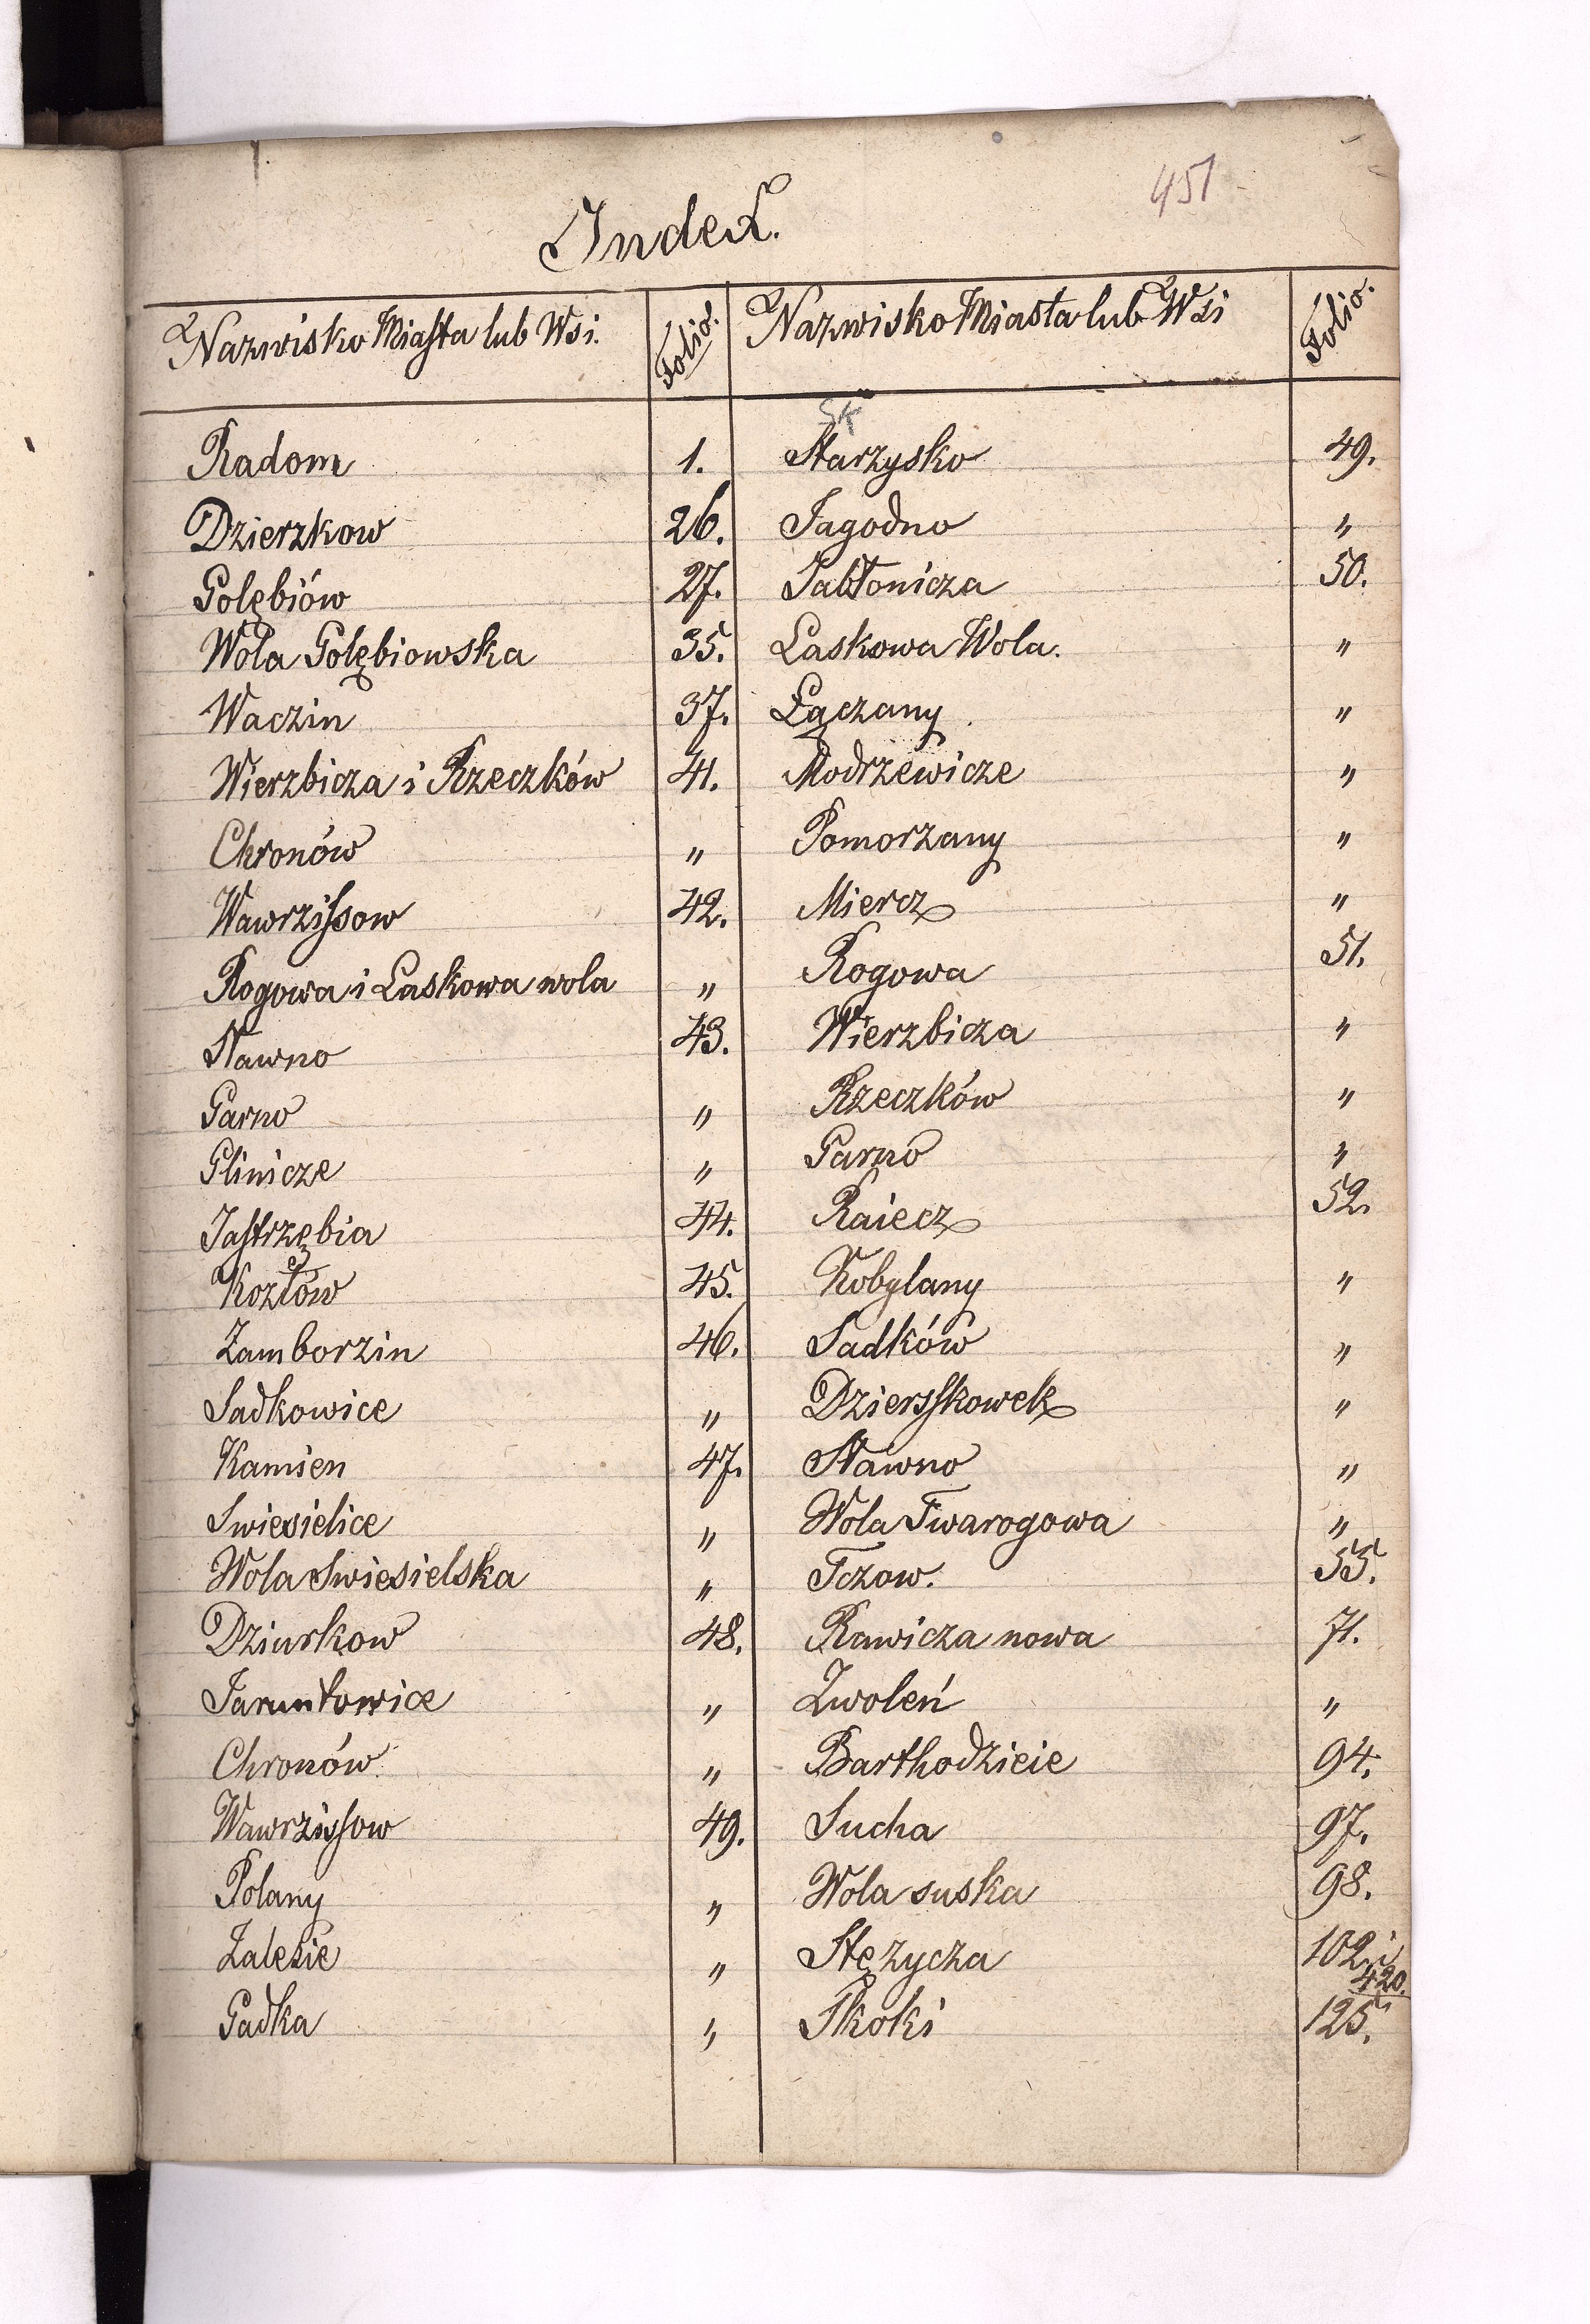 451
Index.
Nazwisko Miasta lub Wsi. Folio. Nazwisko Miasta lub Wsi Folio.
Sk
Radom 1. Starzysko 49.
Dzierzkow 26. Jagodno "
Golębiów 27. Jabłonicza 50.
Wola Golębiowska 35. Laskowa Wola. "
Waczin 37. Łączany "
Wierzbicza i Rzeczków 41. Modrzewicze "
Chronów " Pomorzany "
Wawrzissow 42. Miercz "
Rogowa i Laskowa wola " Rogowa 51.
Stawno 43. Wierzbicza "
Garno " Rzeczków "
Glinicze " Garno "
Jastrzębia 44. Raiecz 52.
Kozłów 45. Kobylany "
Zamborzin 46. Sadków "
Sadkowice " Dziersskowek "
Kamien 47. Stawno "
Swiesielice " Wola Twarogowa "
Wola Swiesielska " Tczow. 55.
Dziurkow 48. Rawicza nowa 71.
Jaruntowice " Zwoleń "
Chronów " Barthodzieie 94.
Wawrzissow 49. Sucha 97.
Polany " Wola suska 98.
Zalesie " Stężycza 102. i 420.
Gadka " Skoki 125.